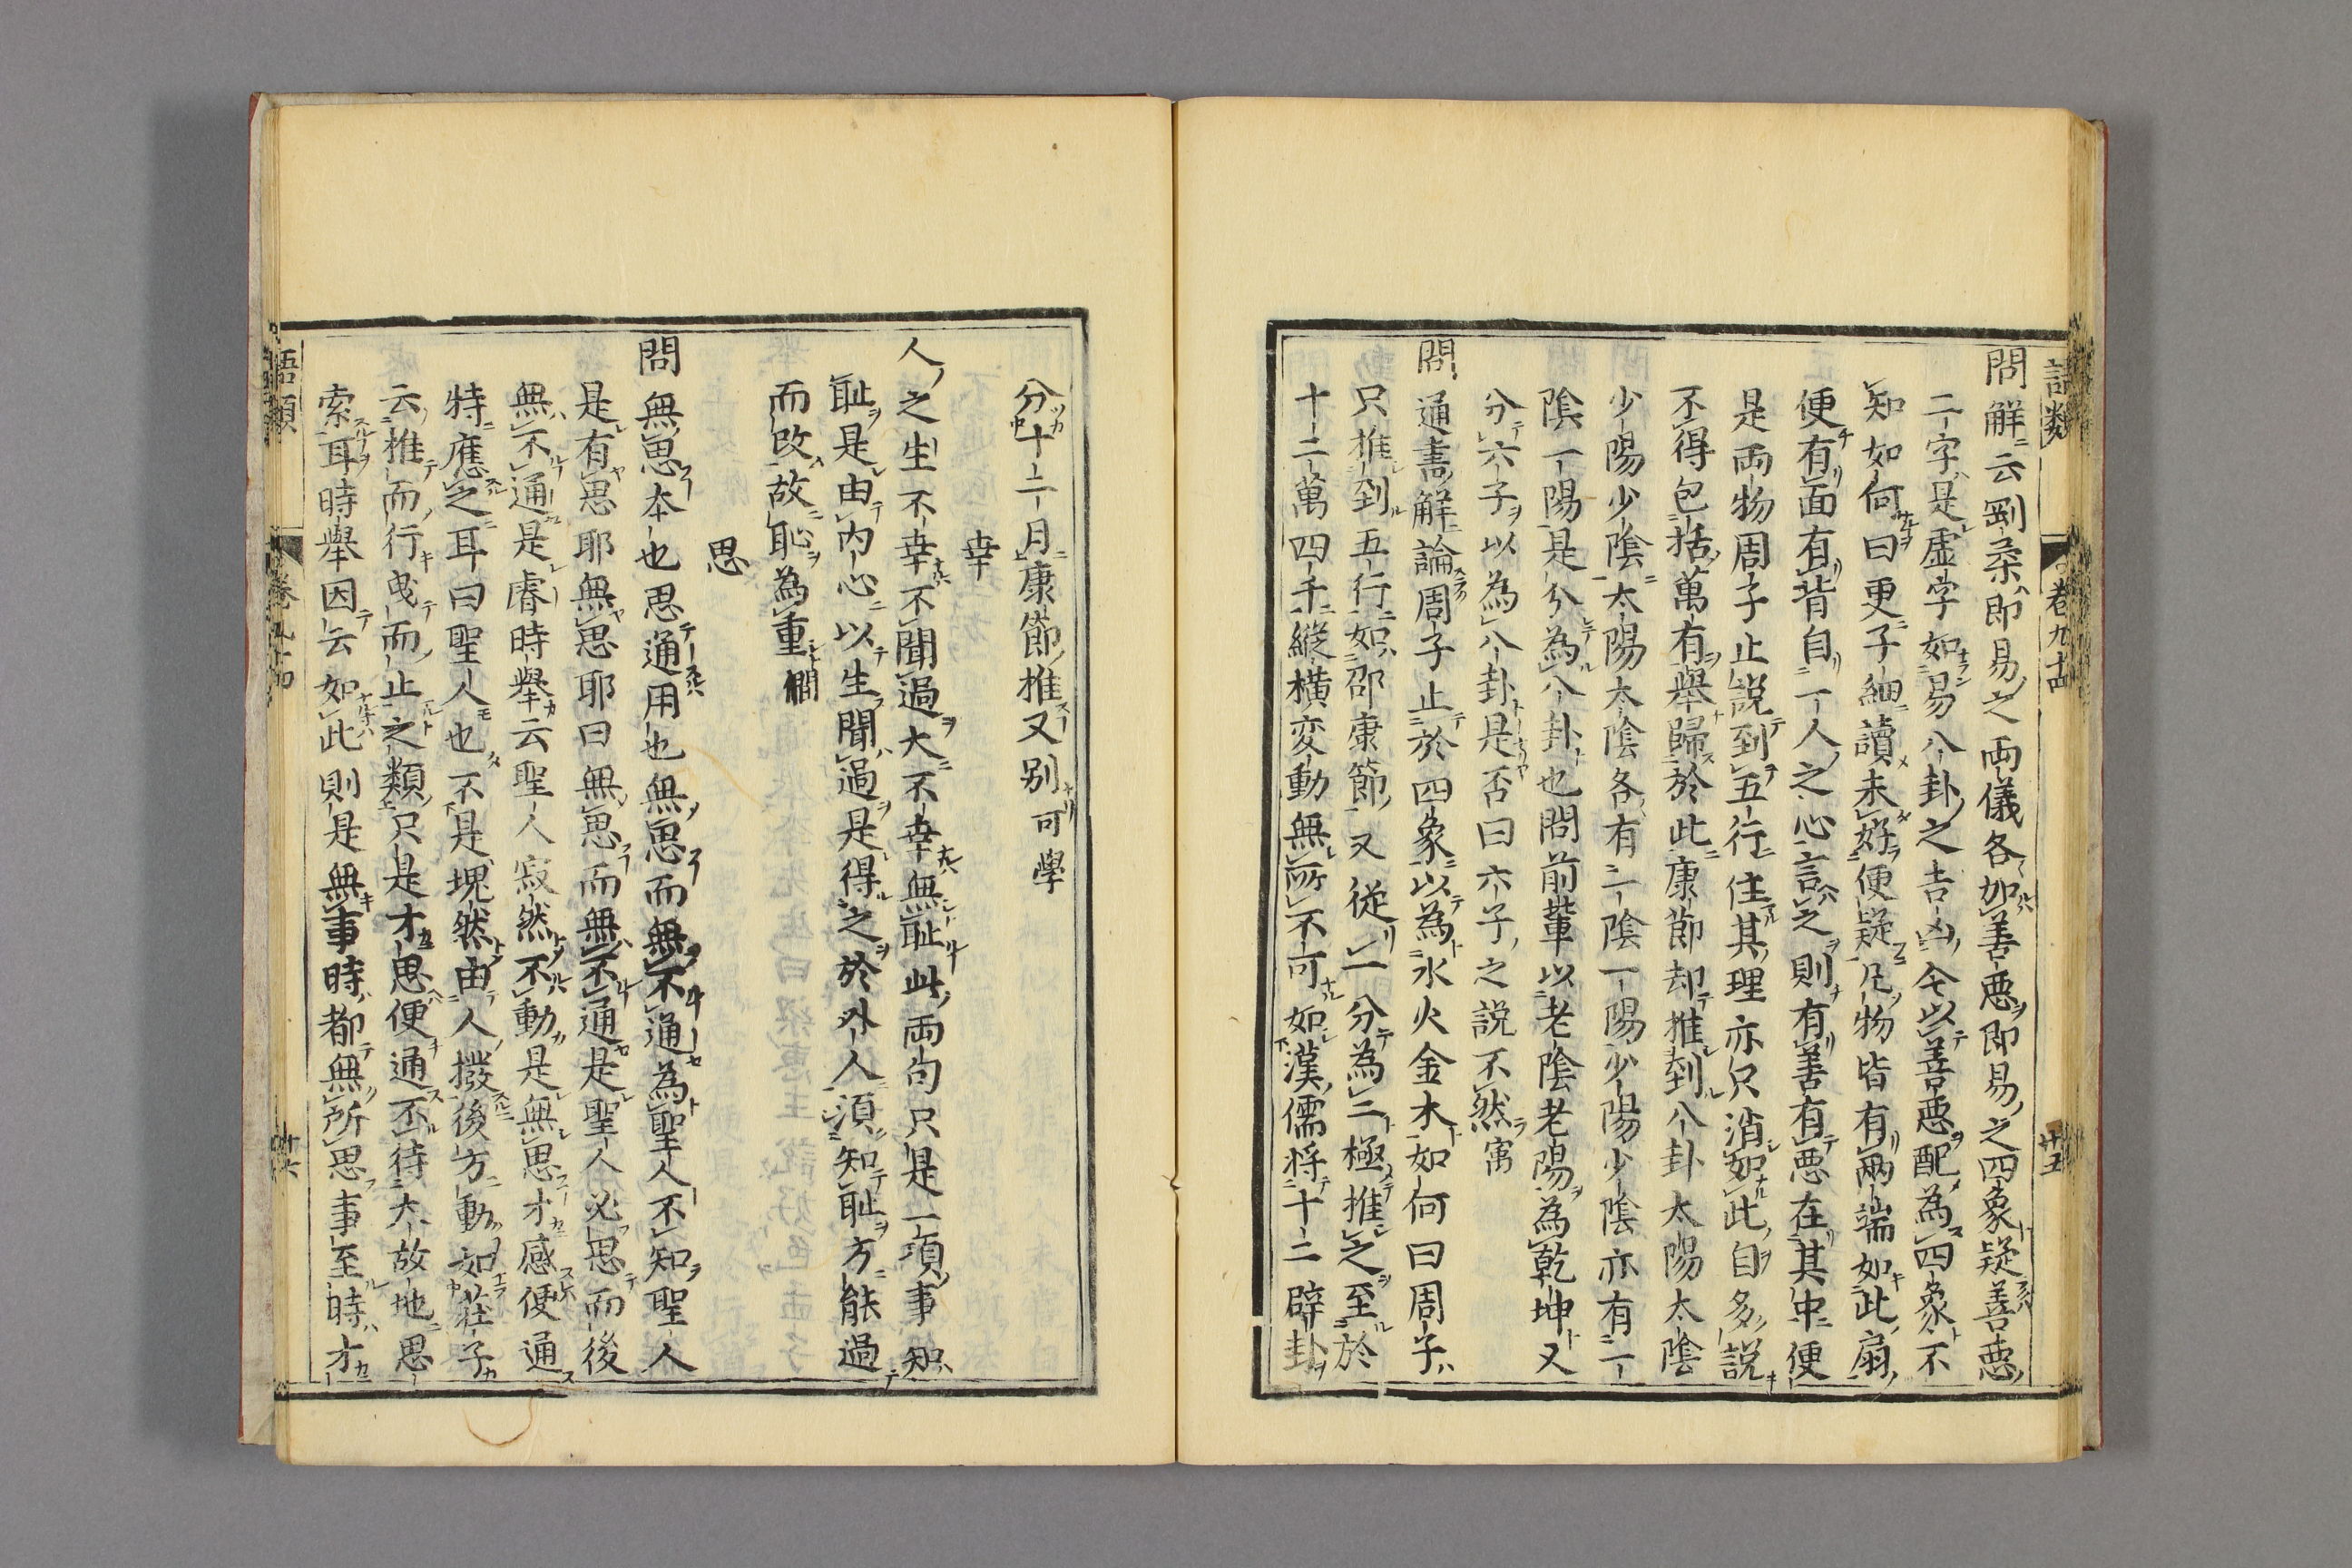 語類 卷九十四 廿五
問解云剛柔即易之両儀各加善惡即易之四象疑善惡
二字是虚字如易八卦之吉凶今以善惡配為四象不
知如何曰更子細讀未好便疑凡物皆有兩端如此扇
便有面有背自一人之心言之則有善有惡在其中便
是両物周子止說到五行住其理亦只消如此自多說
不得包括萬有舉歸於此康節却推到八卦太陽太陰
少陽少陰太陽太陰各有一陰一陽少陽少陰亦有一
陰一陽是分為八卦也問前輩以老陰老陽為乾坤又
分六子以為八卦是否曰六子之說不然㝢
問通書解論周子止於四象以為水火金木如何曰周子
只推到五行如邵康節又從一分為二極推之至於
十二萬四千縱橫変動無所不可如漢儒将十二辟卦
分十二月康節推又别可學
幸
人之生不幸不聞過大不幸無耻此両句只是一項事知
耻是由内心以生聞過是得之於外人須知耻方能過
而改故恥為重僩
思
問無思本也思通用也無思而無不通為聖人不知聖人
是有思耶無思耶曰無思而無不通是聖人必思而後
無不通是睿時舉云聖人寂然不動是無思才感便通
特應之耳曰聖人也不是塊然由人撥後方動如荘子
云推而行曵而止之類只是才思便通不待大故地思
索耳時舉因云如此則是無事時都無所思事至時才
語類 卷九十四 廿六